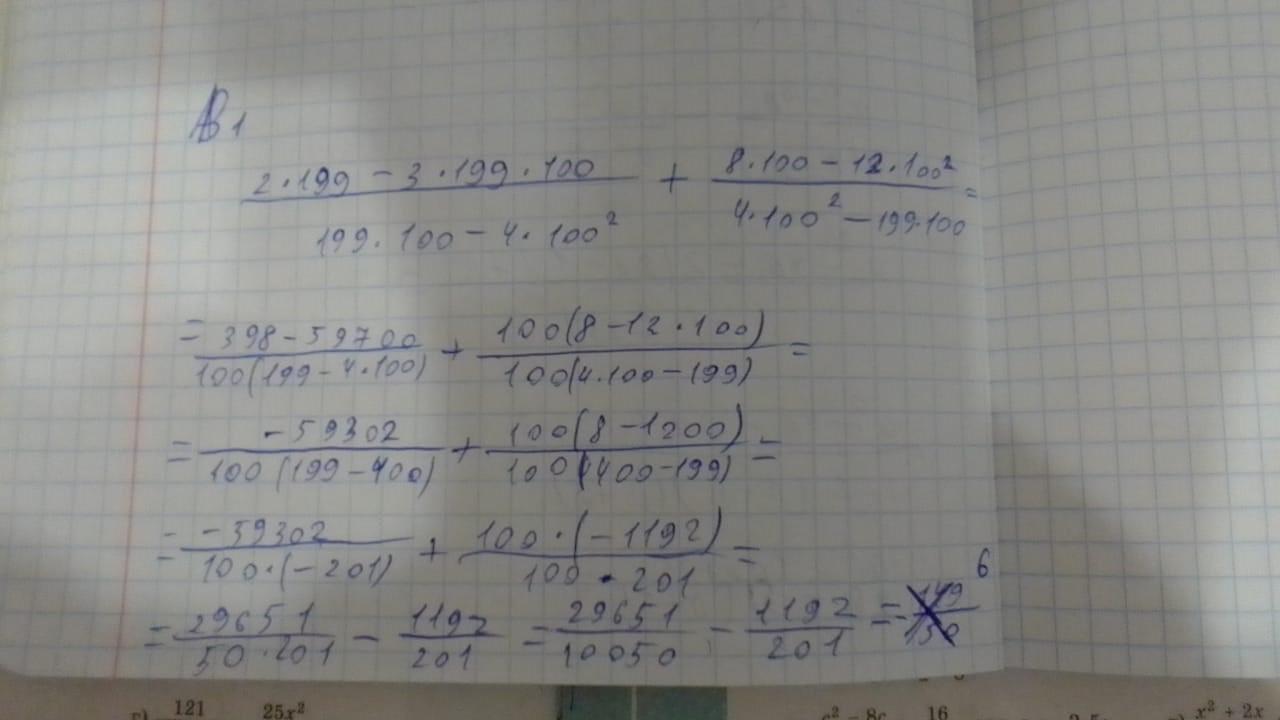 В1
(2·199 − 3·199·100)/(199·100 − 4·100²) + (8·100 − 12·100²)/(4·100² − 199·100) =
= (398 − 59700)/(100(199 − 4·100)) + (100(8 − 12·100))/(100(4·100 − 199)) =
= (−59302)/(100(199 − 400)) + (100(8 − 1200))/(100(400 − 199)) =
= (−59302)/(100·(−201)) + (100·(−1192))/(100·201) =
= 29651/(50·201) − 1192/201 = 29651/10050 − 1192/201 =
6
121 25x²
c² − 8c 16
x² + 2x